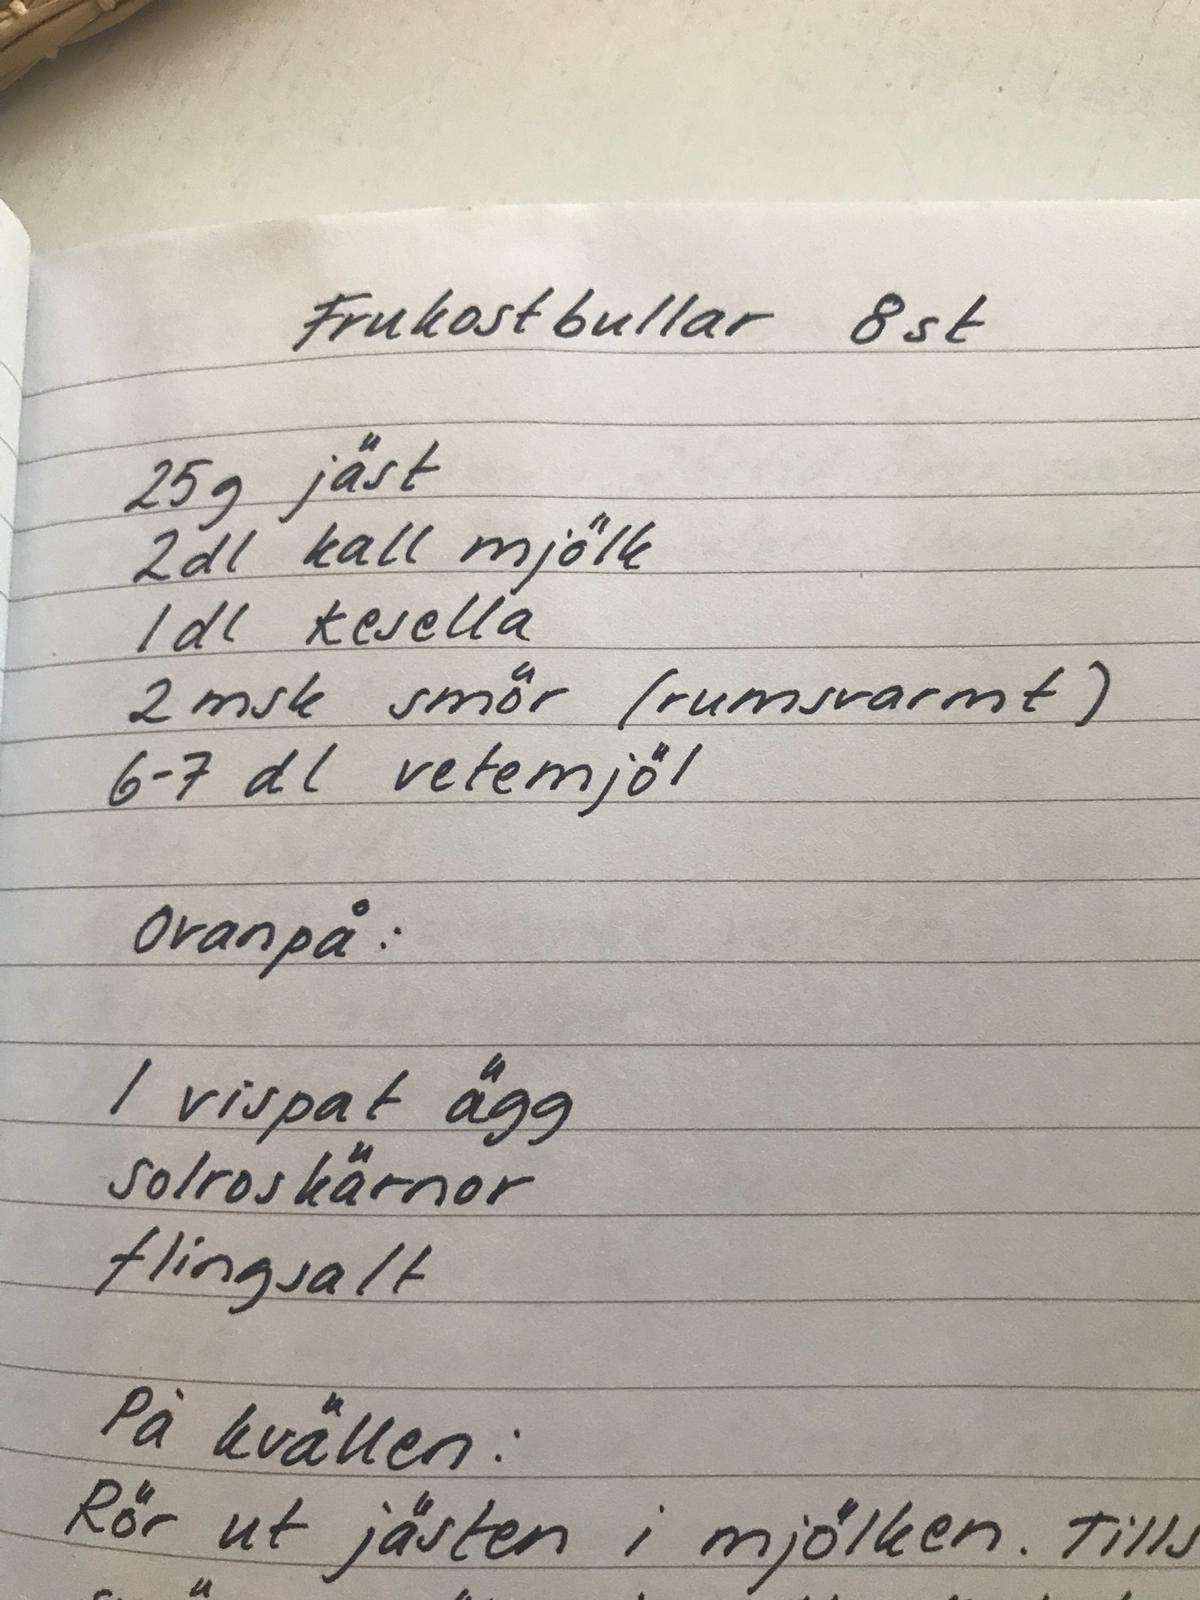 Frukostbullar 8st
25g jäst
2dl kall mjölk
1dl kesella
2 msk smör (rumsvarmt)
6-7 dl vetemjöl
Ovanpå:
1 vispat ägg
solroskärnor
flingsalt
På kvällen:
Rör ut jästen i mjölken. Tills